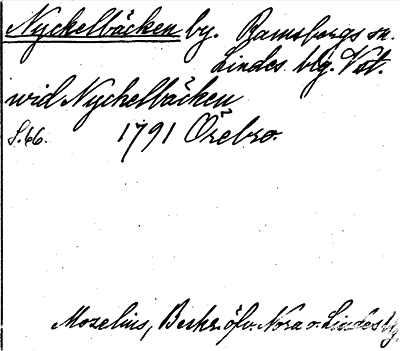 Nyckelbäcken by. Ramsbergs sn.
Lindes blg. Vst.
wid Nyckelbäcken
S. 66. 1791 Örebro.
Mozelius, Beskr. öfv. Nora o. Lindesbg.